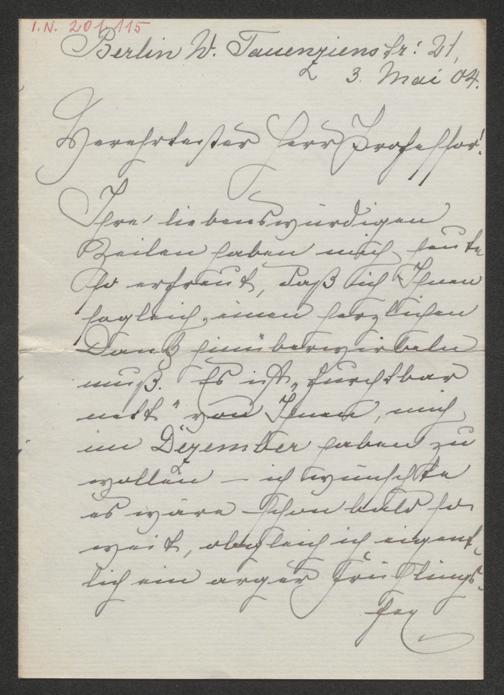 I.N. 201.115
Berlin W. Tauenzienstr: 21,
3. Mai 04.
Verehrtester Herr Professor!
Ihre liebenswürdigen
Zeilen haben mich heute
so erfreut, daß ich Ihnen
sogleich einen herzlichen
Dank hinüberwirbeln
muß. Es ist „furchtbar
nett" von Ihnen, mich
im Dezember haben zu
wollen – ich wünschte
es wäre schon bald so
weit, obgleich ich eigent-
lich ein arger Frühlings-
fex